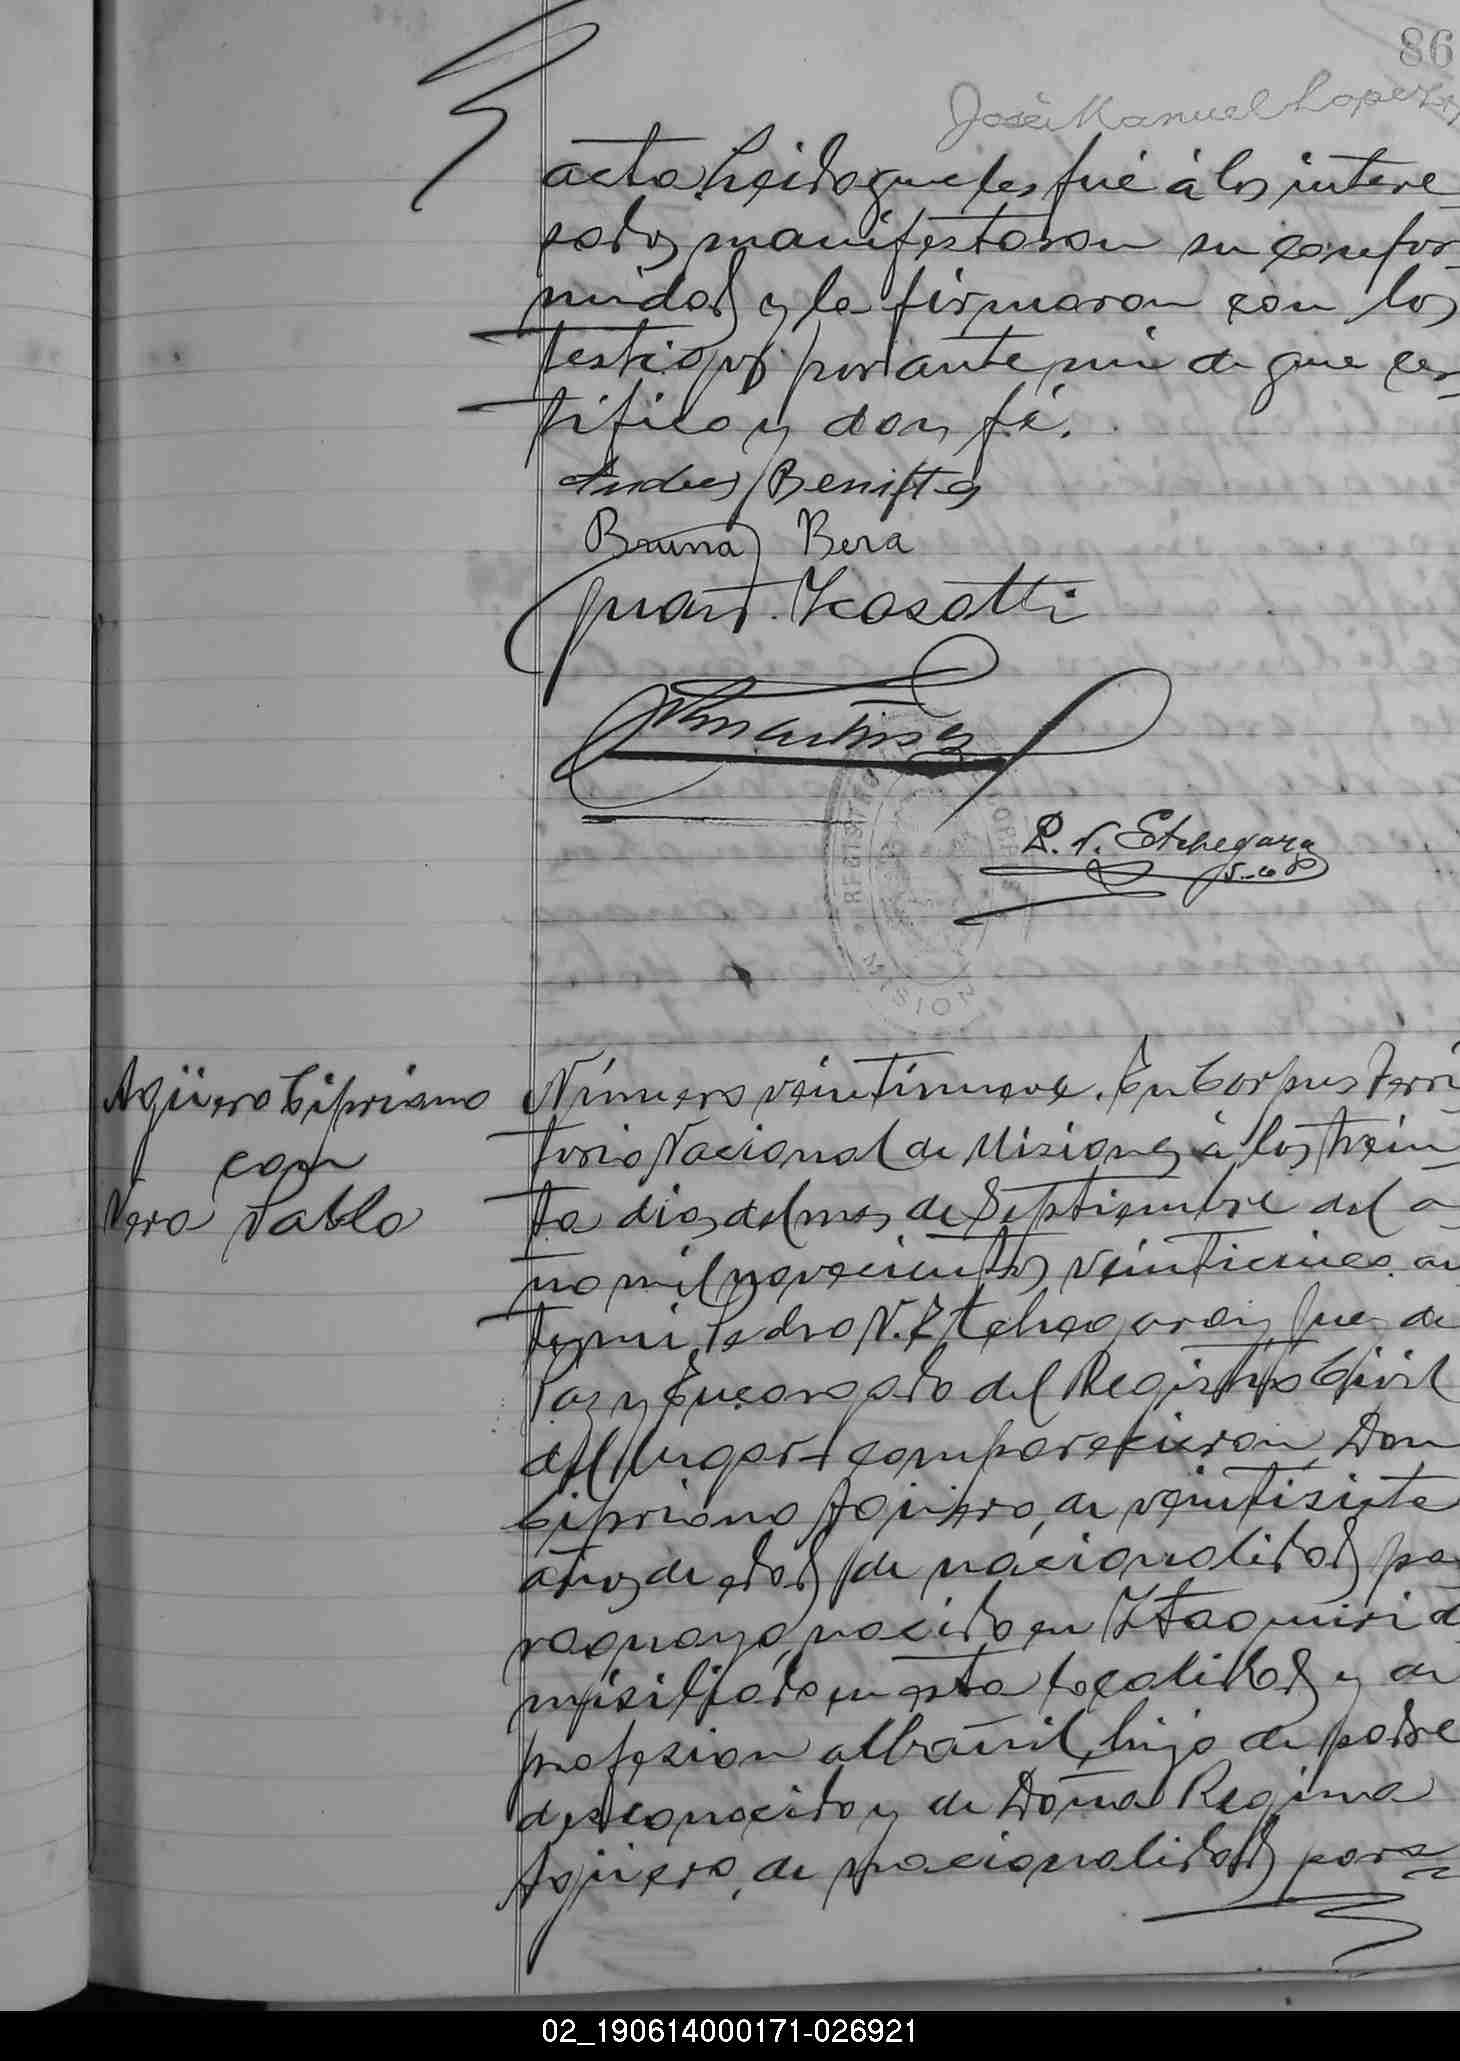 86
José Manuel Lopez
acta. Leida que les fué á los intere-
sados manifestaron su confor-
midad y la firmaron con los
testigos por ante mi de que cer-
tifico y doy fé.
Andres Benites
Bruna Bera
Juan. Kasatti
Martinez
P. N. Etchegaray
REGISTRO
MISIONES
Agüero Cipriano
con
Vera Pabla
Número veintinueve. En Corpus Terri
torio Nacional de Misiones á los trein
ta dias del mes de Septiembre del a
ño mil novecientos veinticinco. an
te mi Pedro N. Etchegaray Juez de
Paz y Encargado del Registro Civil
del lugar comparecieron Don
Cipriano Agüero, de veintisiete
años de edad, de nacionalidad pa
raguaya, nacido en Itaquiri d
misiliado en esta localidad y de
profesion albañil, hijo de padre
desconocido y de Doña Regina
Agüero, de nacionalidad para=
02_190614000171-026921